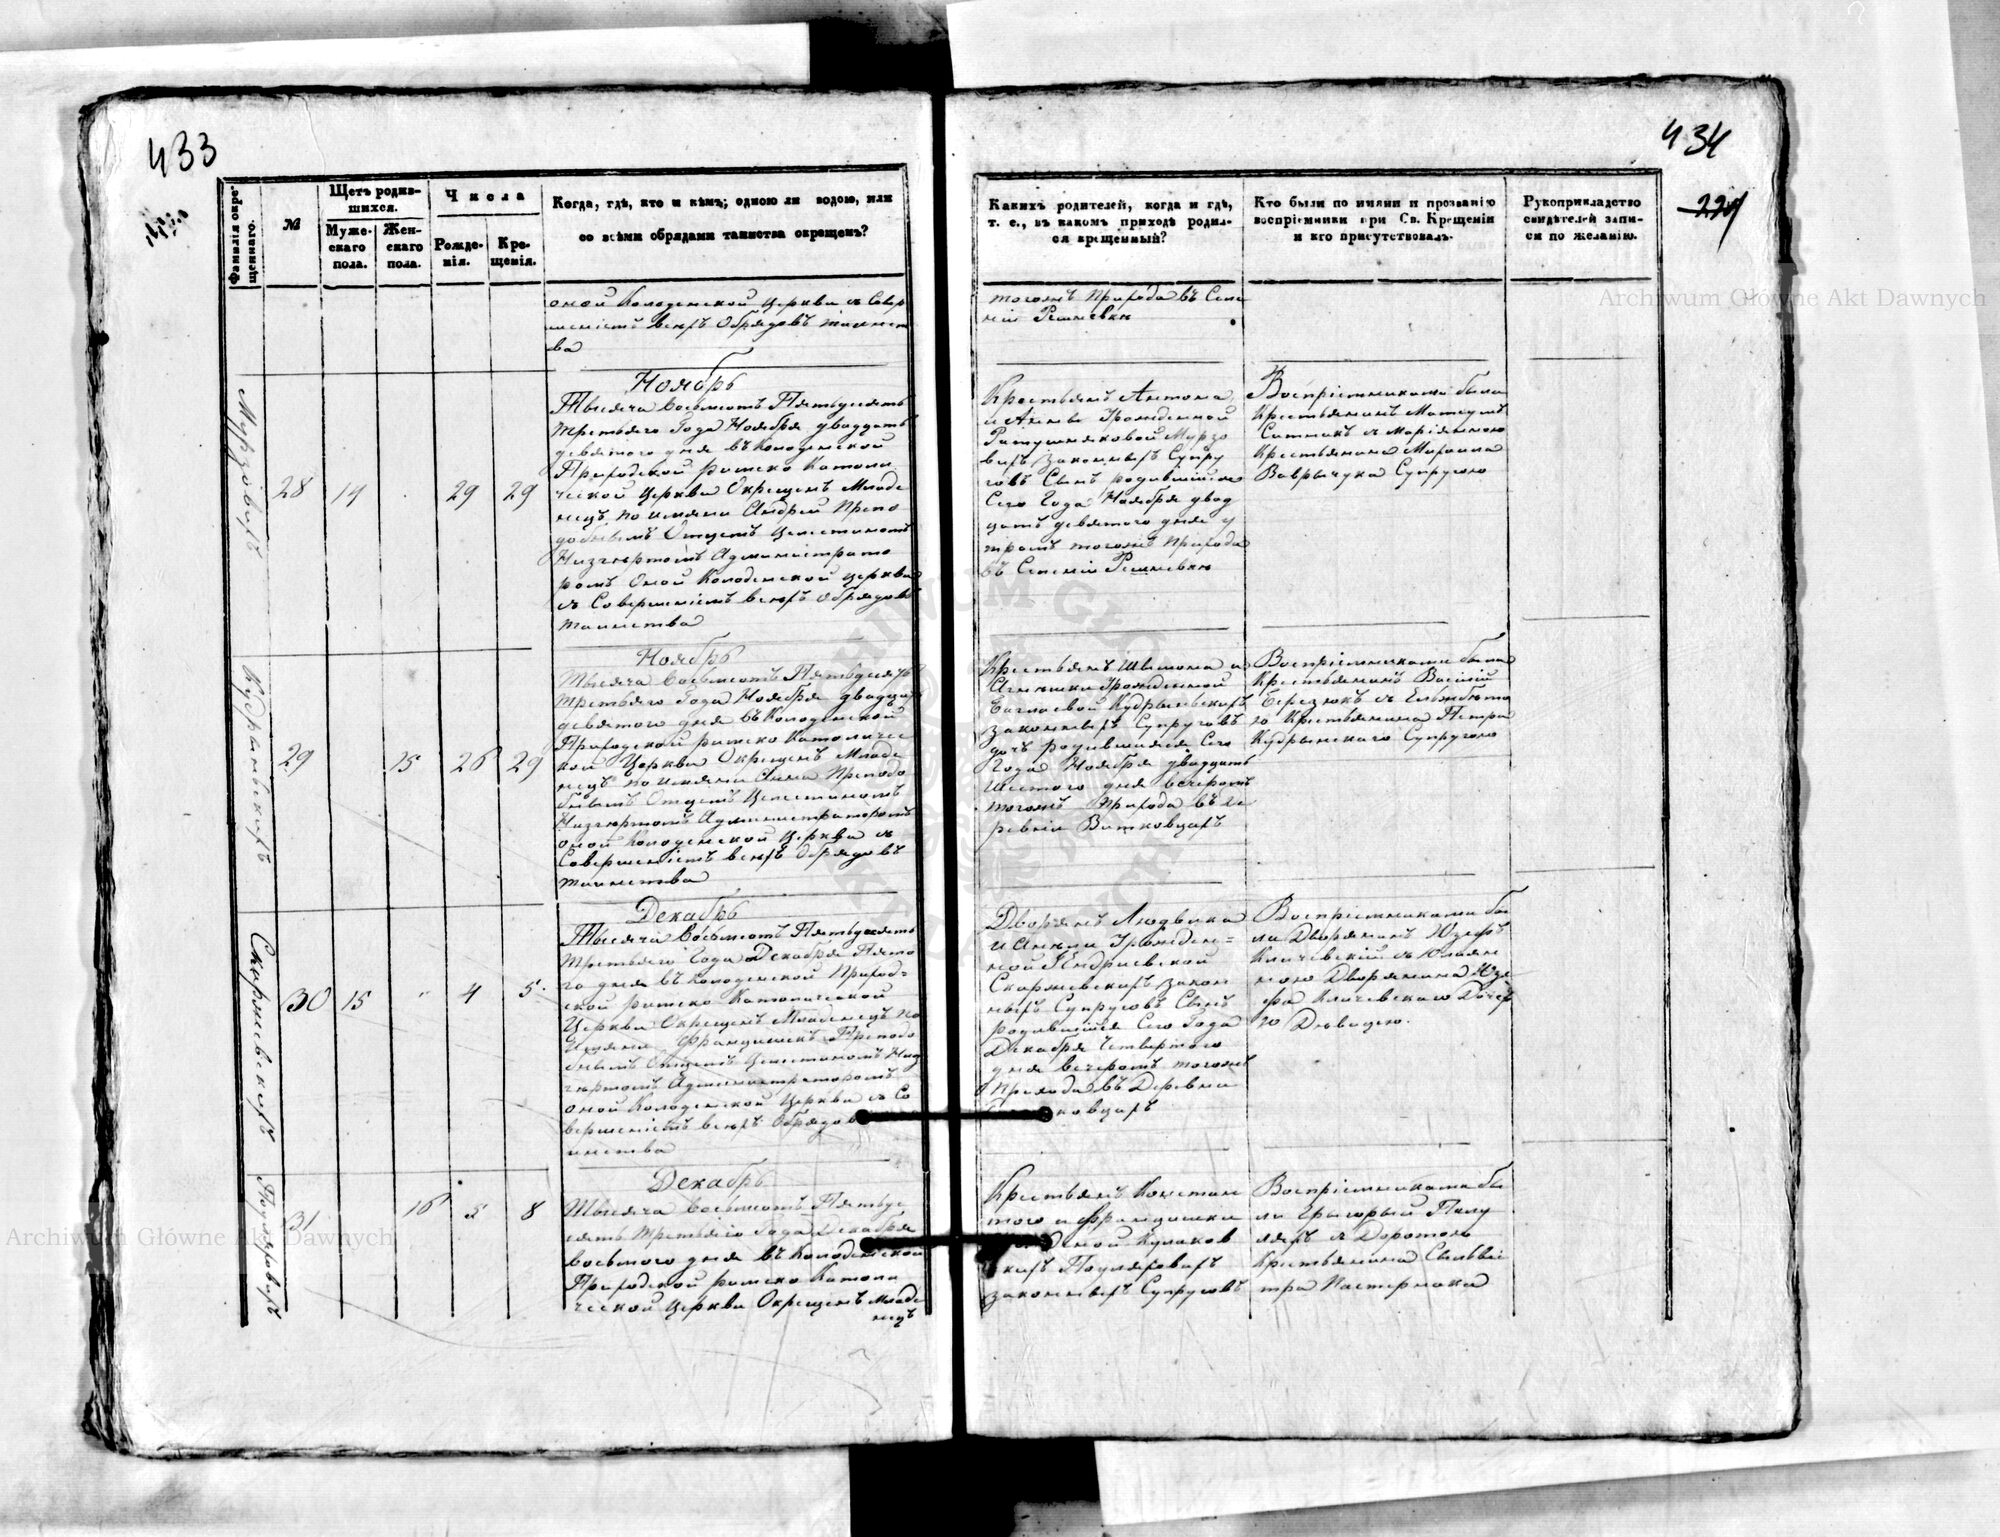 433
Фамилія окре-
щеннаго.
№
Щетъ родив-
шихся.
Муже-
скаго
пола.
Жен-
скаго
пола.
Числа
Рожде-
нія.
Кре-
щенія.
Когда, гдѣ, кто и кѣмъ; одною ли водою, или
со всѣми обрядами таинства окрещенъ?
оной Колоденской Церкви съ Совер
шеніемъ всѣхъ Обрядовъ таинст
ва
28
14
29
29
Ноябрь
Тысяча Восемсотъ Пятьдесятъ
третьяго Года Ноября двадцать
девятого дня въ Колоденской
Приходской римско Католи
ческой Церкви Окрещенъ Младе
нецъ по имени Андрей Препо
добнымъ Отцемъ Целестиномъ
Администрато
ромъ Оной Колоденской Церкви
съ Совершеніемъ всѣхъ Обрядовъ
таинства
29
15
26
29
Ноябрь
Тысяча Восемсотъ Пятьдесятъ
третьяго Года Ноября двадцать
девятого дня въ Колоденской
Приходской римско Католичес
кой Церкви Окрещенъ Младе
нецъ по имени Анна Преподо
бнымъ Отцемъ Целестиномъ
Администраторомъ
оной Колоденской Церкви съ
Совершеніемъ всѣхъ Обрядовъ
таинства
Скоржевскихъ
30
15
4
5
Декабрь
Тысяча Восемсотъ Пятьдесятъ
третьяго Года Декабря Пято
го дня въ Колоденской Приход=
ской римско Католической
Церкви Окрещенъ Младенецъ по
имени Францишекъ Преподо
бнымъ Отцемъ Целестиномъ
Администраторомъ
оной Колоденской Церкви съ Со
вершеніемъ всѣхъ Обрядов
инства
31
16
5
8
Декабрь
Тысяча Восемсотъ Пятьдес
ятъ третьяго Года Декабря
восьмого дня въ Колоденской
Приходской римско Католи
ческой Церкви Окрещенъ Младе
нецъ
434
221
Какихъ родителей, когда и гдѣ,
т. е., въ какомъ приходѣ родил-
ся крещенный?
Кто были по имяни и прозванію
воспріемники при Св. Крещеніи
и кто присутствовалъ.
Рукоприкладство
свидѣтелей запи-
си по желанію.
тогожъ Прихода въ Селе
ніи Решневки
Крестьянъ Антона
и Анны Урожденной
Мурзо
выхъ Законныхъ Супру
говъ Сынъ родившійся
Сего Года Ноября двад
цать девятого дня у
тромъ тогожъ Прихода
въ Селеніи Решневки
Воспріемниками были
Крестьянинъ Матеушъ
Ситникъ съ Маріянною
Крестьянина Михаила
Ваврычука Супругою
Крестьянъ Шимона и
Агнешки Урожденной
Кудрынскихъ
законныхъ Супруговъ
дочь родившаяся Сего
Года Ноября двадцать
Шестого дня вечеромъ
тогожъ Прихода въ де
ревни Витковцахъ
Воспріемниками были
Крестьянинъ Василій
Березюкъ съ Ельжбѣто
ю Крестьянина Петра
Кудрынскаго Супругою
Дворянъ Людвика
и Анели Урожден=
ной Ендриевской
Скоржевскихъ Закон
ныхъ Супруговъ Сынъ
родившійся Сего Года
Декабря Четвертого
дня вечеромъ тогожъ
Прихода въ Деревни
ковцахъ
Воспріемниками бы
ли Дворянинъ Юзефъ
Кличевскій съ Юлиян
ною Дворянина Юзе
фа Кличевского Дочер
ю Дѣвицею.
Крестьянъ Констан
того и Францишки
Кулаков
законныхъ Супруговъ
Воспріемниками бы
ли Григорый Полу
съ Доротою
Крестьянина Сильве
тра Пастернака
Archiwum Główne Akt Dawnych
Archiwum Główne Akt Dawnych